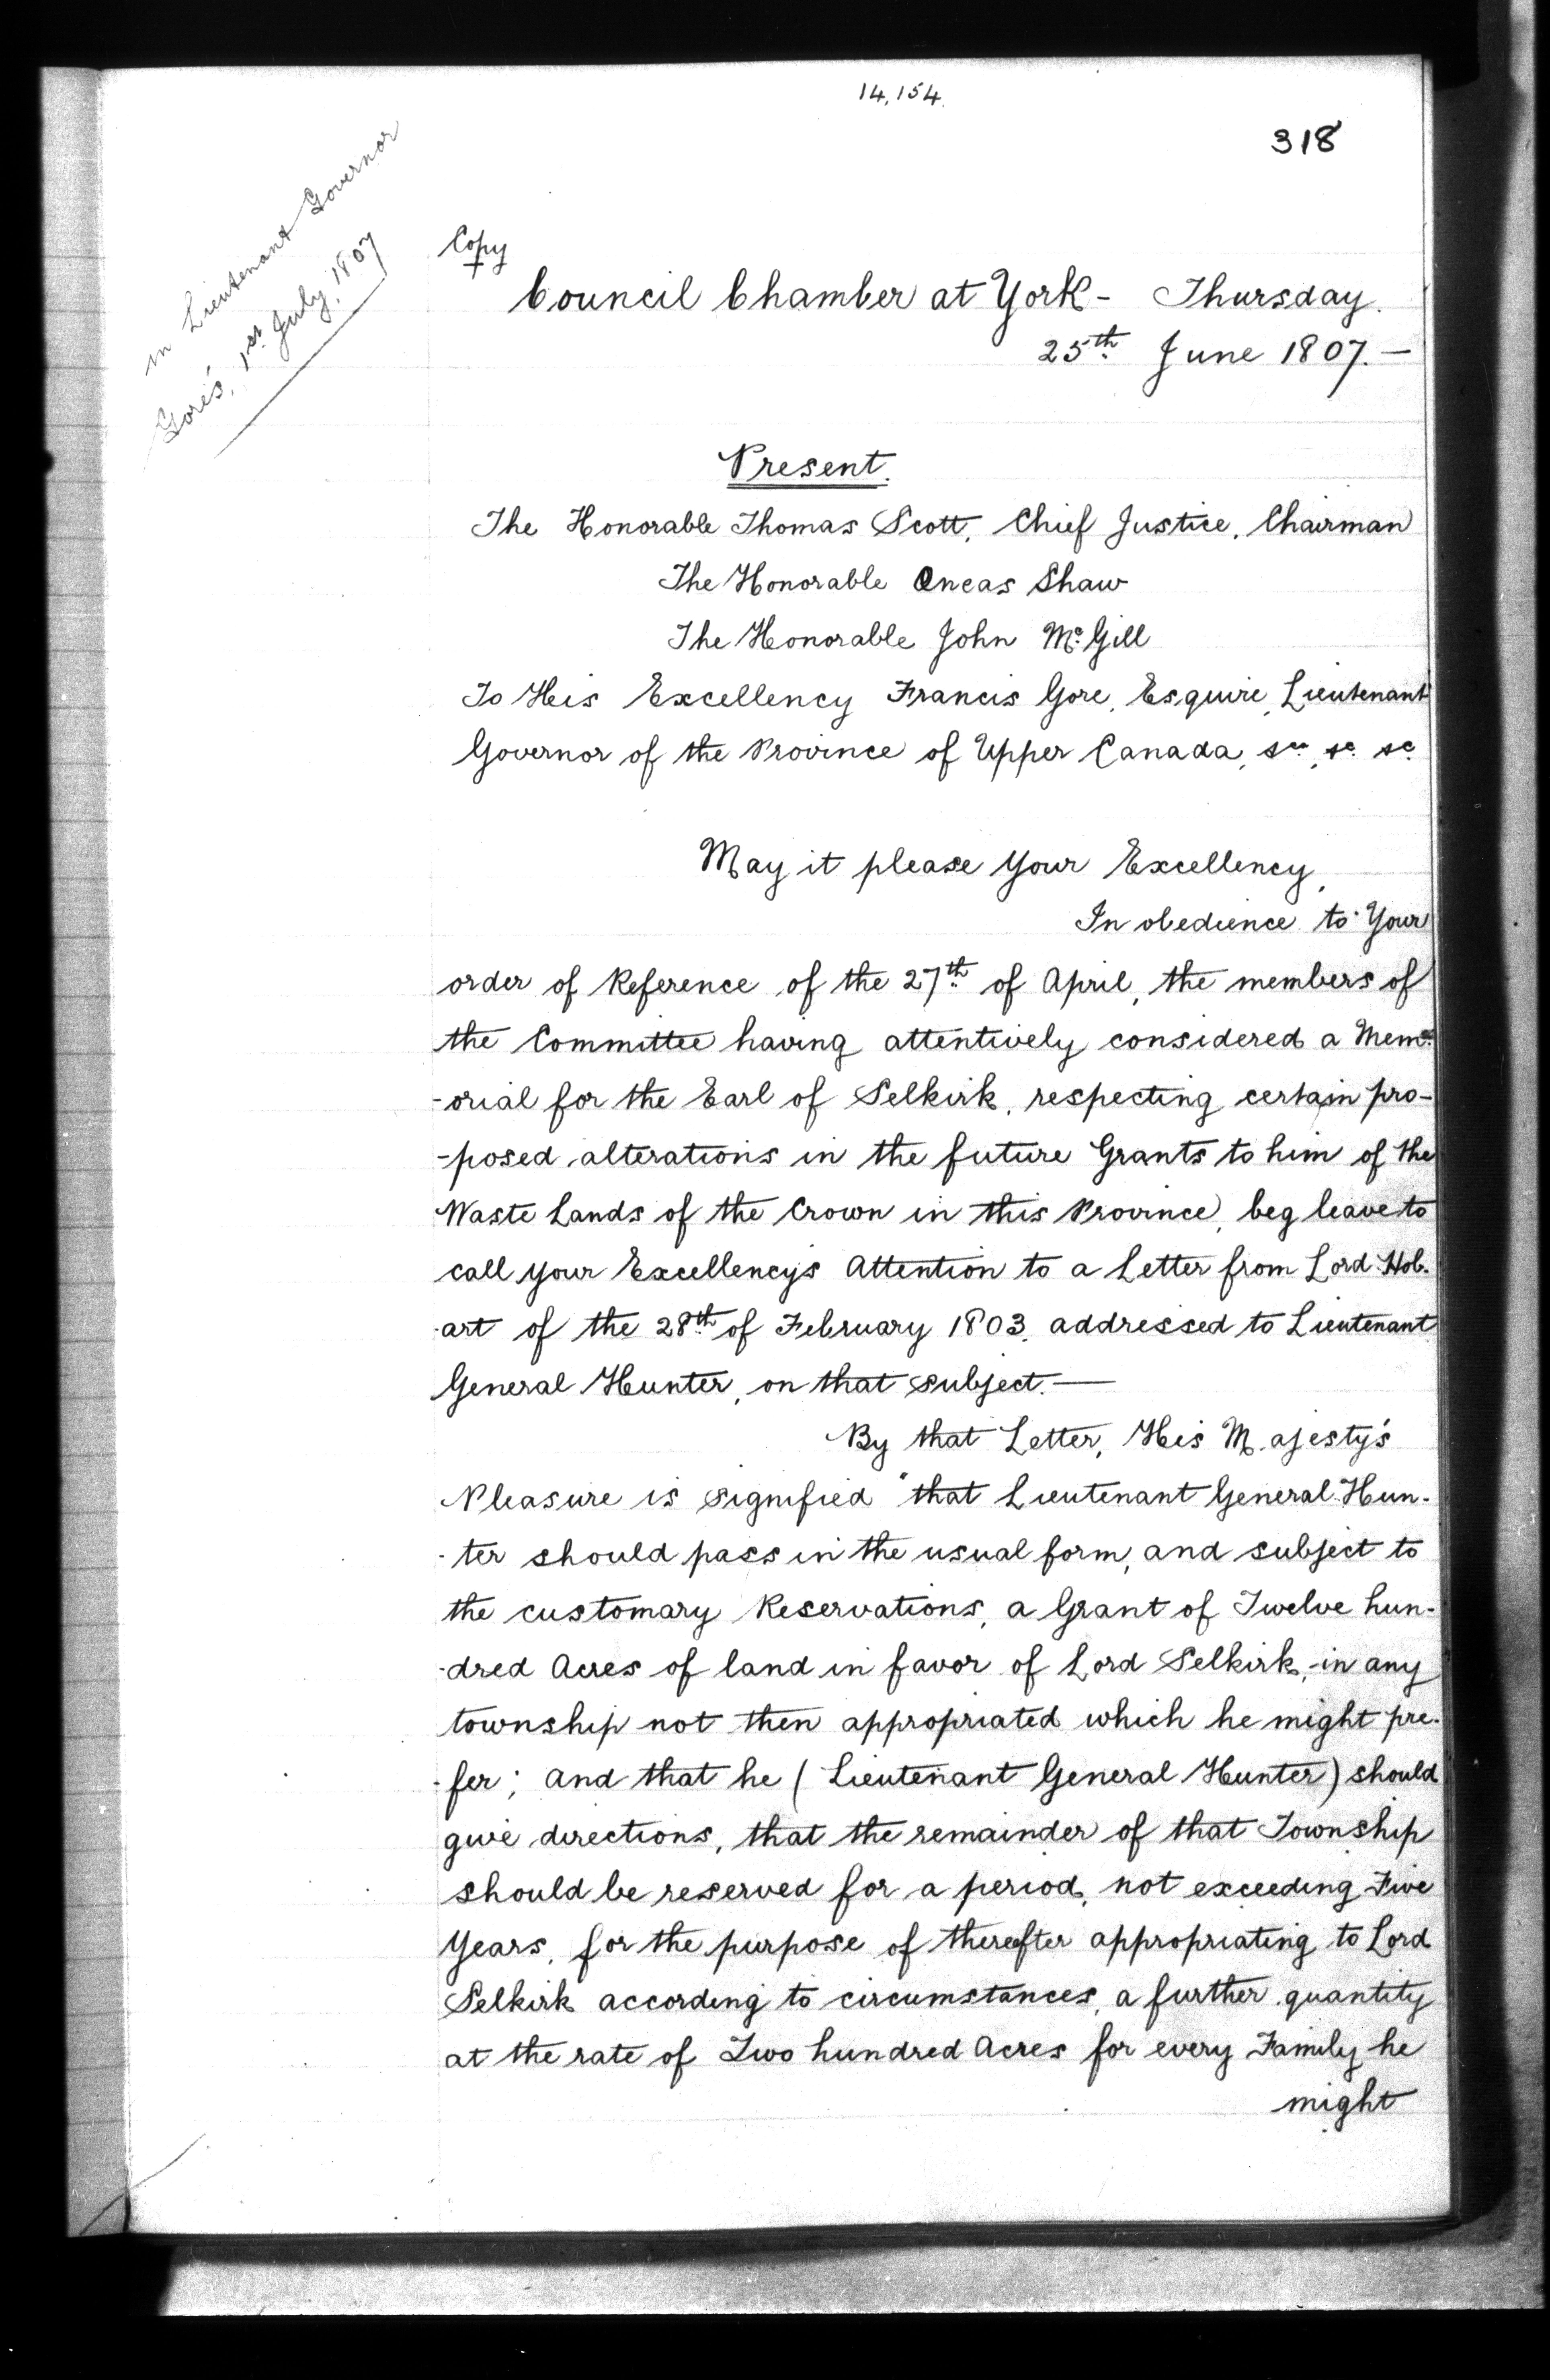 14,154.
318
in Lieutenant Governor
Gore's, 1st July, 1807
Copy
Council Chamber at York - Thursday.
25th June 1807. -
Present.
The Honorable Thomas Scott, Chief Justice, Chairman
The Honorable Æneas Shaw
The Honorable John Mc Gill
To His Excellency Francis Gore, Esquire, Lieutenant
Governor of the Province of Upper Canada, &c., &c. &c.
May it please Your Excellency,
In obedience to Your
order of Reference of the 27th of April, the members of
the Committee having attentively considered a Mem-
-orial for the Earl of Selkirk, respecting certain pro-
-posed alterations in the future Grants to him of the
Waste Lands of the Crown in this Province, beg leave to
call your Excellency's Attention to a Letter from Lord Hob-
-art of the 28th of February 1803, addressed to Lieutenant
General Hunter, on that subject. —
By that Letter, His Majesty's
Pleasure is signified "that Lieutenant General Hun-
-ter should pass in the usual form, and subject to
the customary Reservations, a Grant of Twelve hun-
-dred Acres of land in favor of Lord Selkirk, in any
township not then appropriated which he might pre-
-fer; and that he (Lieutenant General Hunter) should
give directions, that the remainder of that Township
should be reserved for a period, not exceeding Five
Years, for the purpose of thereafter appropriating to Lord
Selkirk according to circumstances, a further quantity
at the rate of Two hundred Acres for every Family he
might